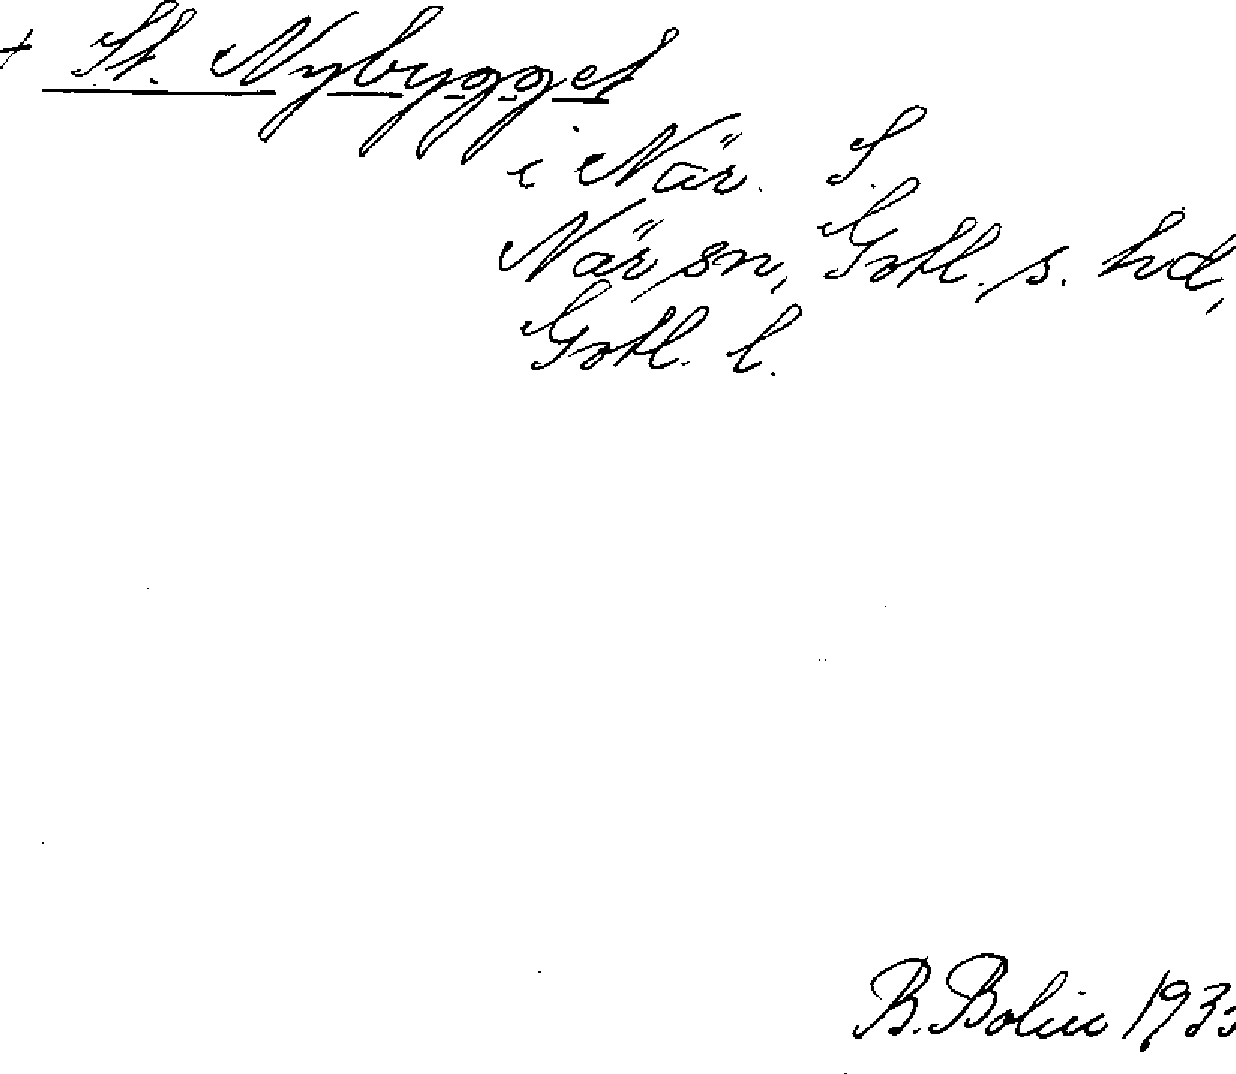 + St. Nybygget
i När. S.
När sn, Gotl. s. hd,
Gotl. l.
B. Bolin 193